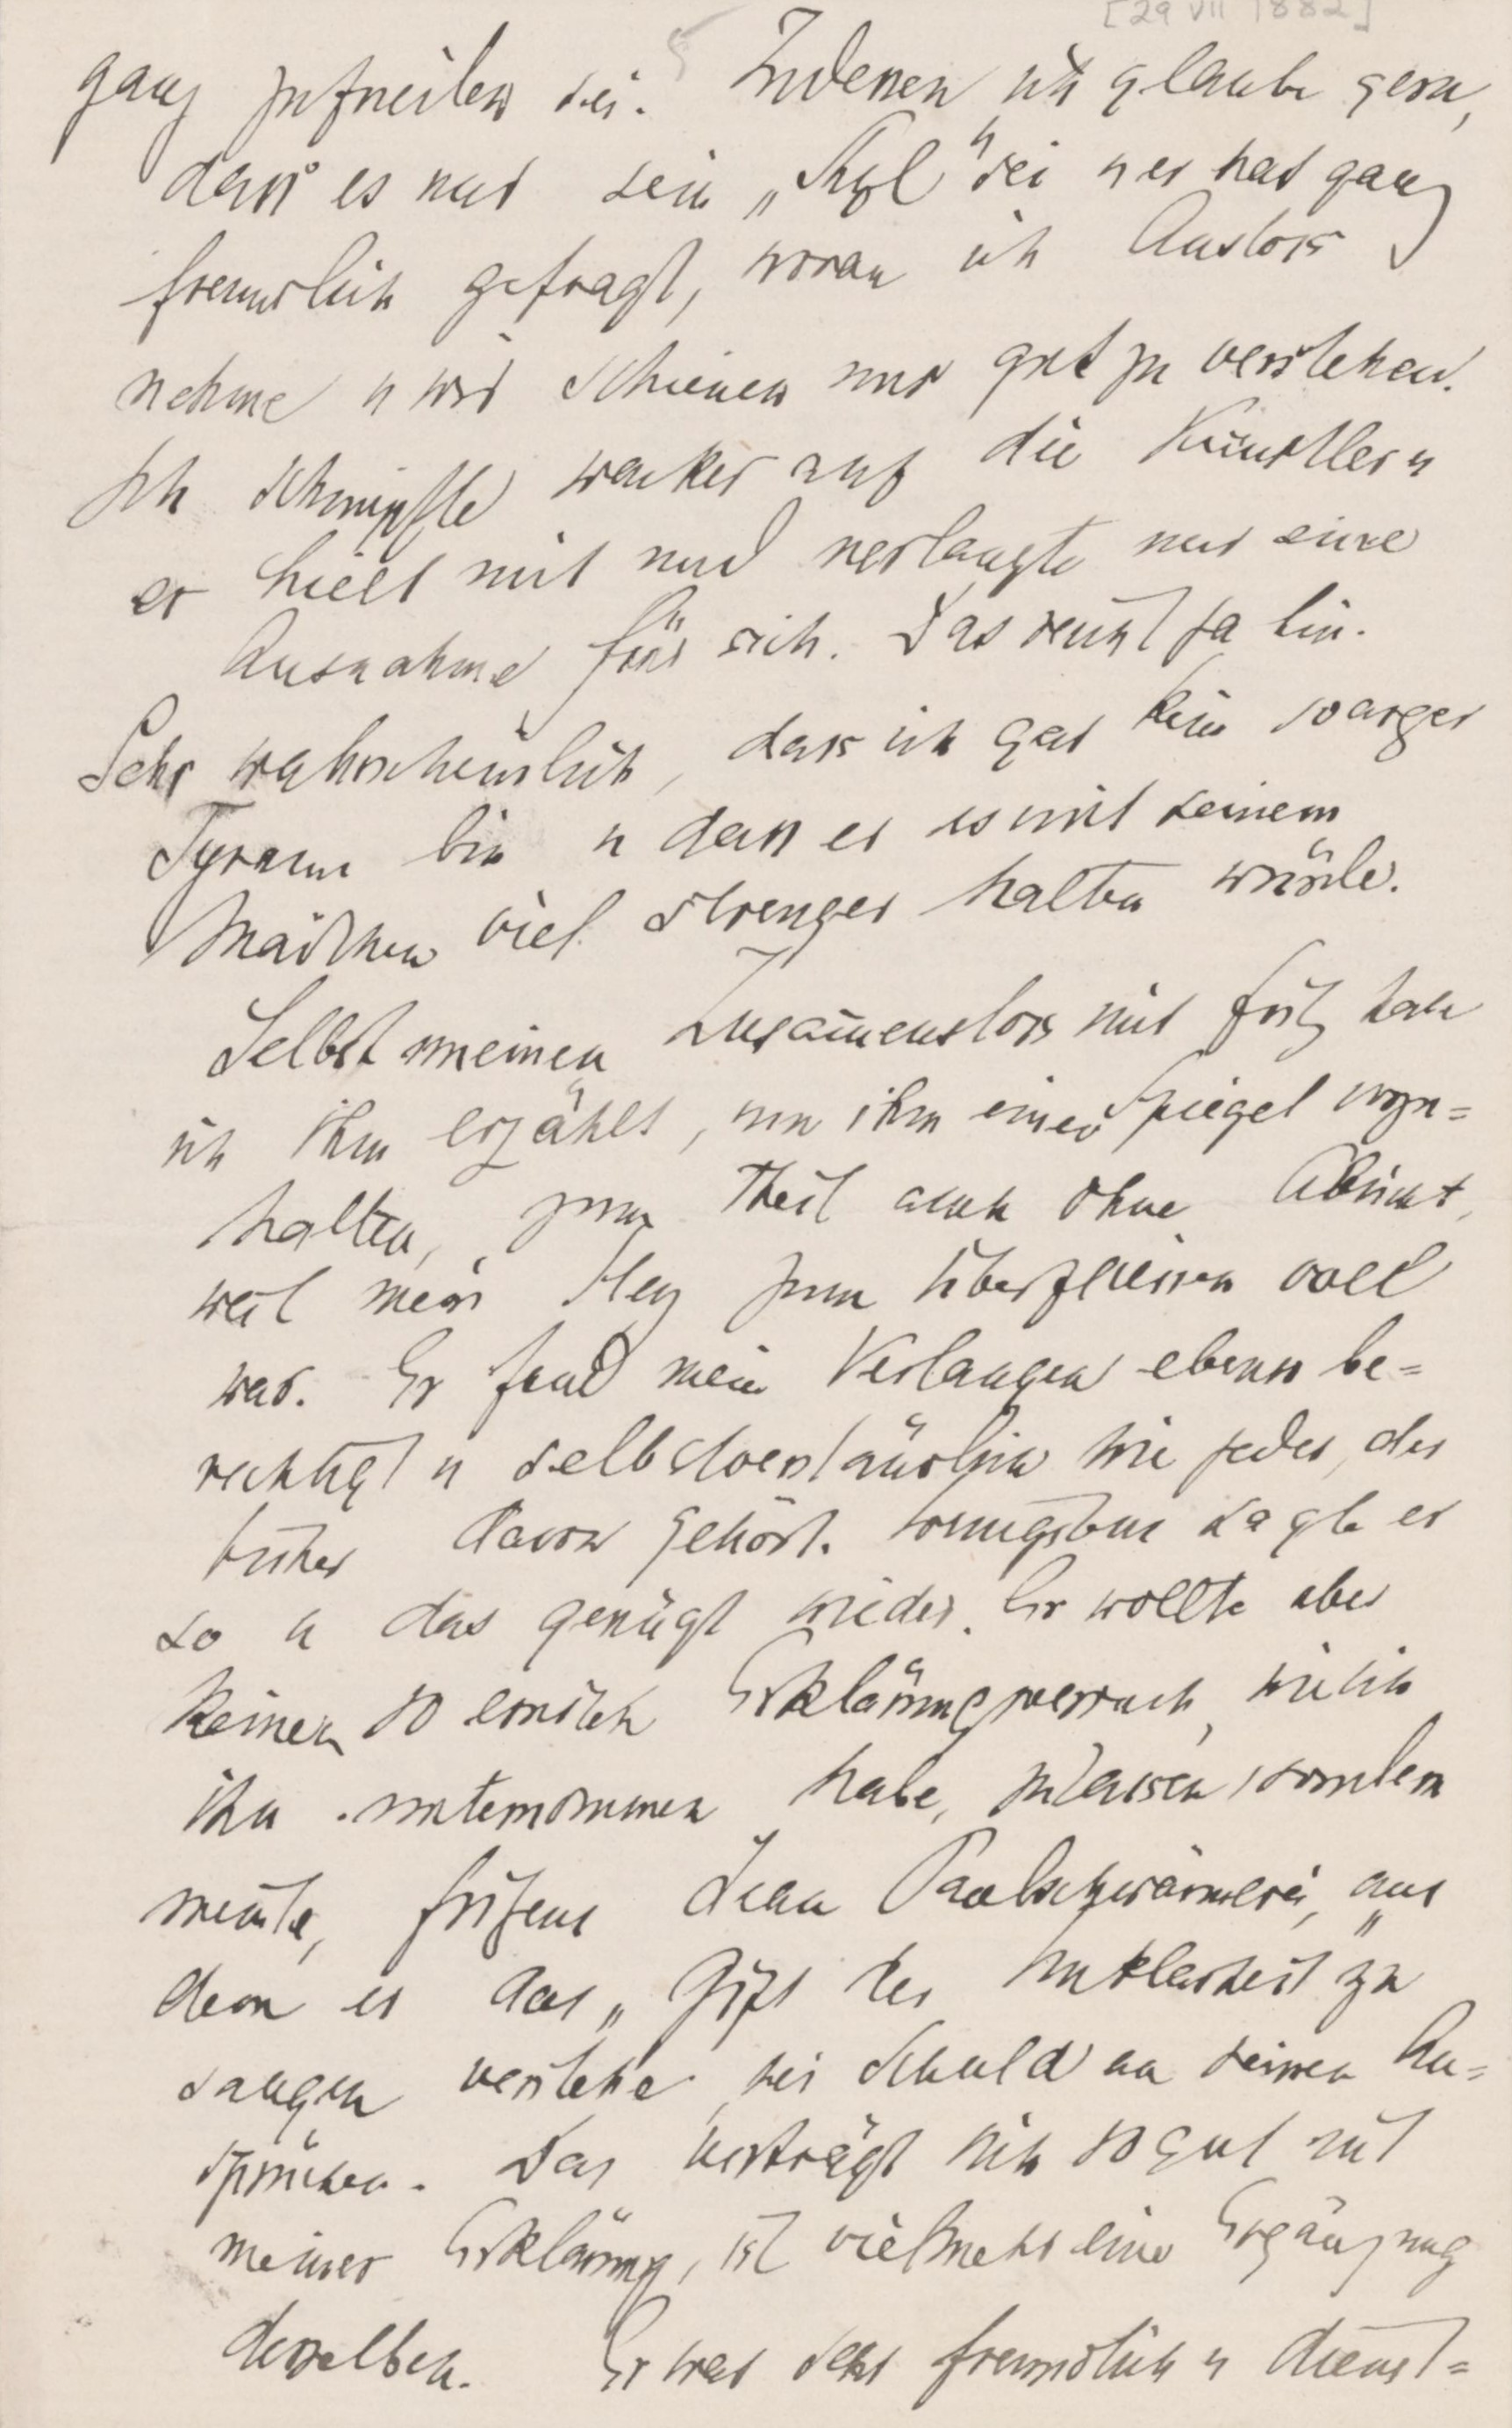 [29 VII 1882]
ganz zufrieden sei. Indessen ich glaube gern,
dass es nur sein „Styl" sei u er hat ganz
freundlich gefragt, woran ich Anstoss
nehme u wir schienen uns gut zu verstehen.
Ich schimpfte wacker auf die Künstler u
er hielt mit und verlangte nur eine
Ausnahme für sich. Das reicht ja hin.
Sehr wahrscheinlich, dass ich gar kein so arger
Tyrann bin u dass er es mit seinem
Mädchen viel strenger halten würde.
Selbst meinen Zusam̄enstoss mit Fritz habe
ich ihm erzählt, um ihm einen Spiegel vorzu=
halten, zum Theil auch ohne Absicht,
weil mein Herz zum überfliessen voll
war. Er fand mein Verlangen ebenso be=
rechtigt u selbstverständlich wie jeder, der
bisher davon gehört. Wenigstens sagte er
so u das genügt wieder. Er wollte aber
keinen so ernsten Erklärungsversuch, wie ich
ihn unternommen habe, zulassen, sondern
meinte, Fritzens Jean Paulschwärmerei, „aus
dem er das „Gift der Unklarheit zu
saugen verstehe", sei Schuld an seinen An=
sprüchen. Das verträgt sich so gut mit
meiner Erklärung, ist vielmehr eine Ergänzung
derselben. Er war sehr freundlich u dienst=